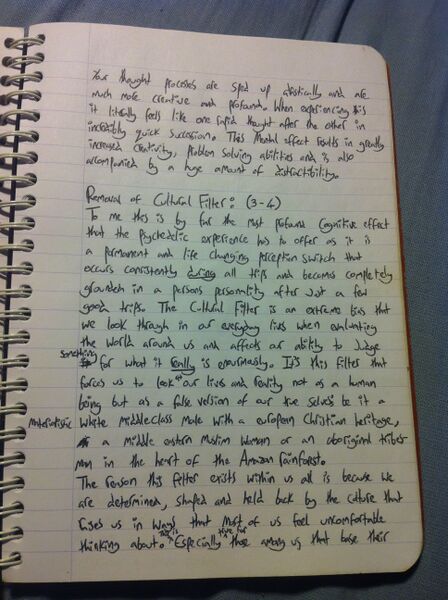 Your thought processes are sped up drastically and are
much more creative and profound. When experiencing this
it literally feels like one rapid thought after the other in
incredibly quick succession. This Mental effect results in greatly
increased creativity, problem solving abilities and is also
accompanied by a huge amount of distractibility.
Removal of Cultural Filter: (3-4)
To me this is by far the most profound cognitive effect
that the Psychedelic experience has to offer as it is
a permanent and life changing perception switch that
occurs consistently during all trips and becomes completely
grounded in a persons personality after just a few
good trips. The Cultural Filter is an extreme bias that
we look through in our everyday lives when evaluating
the world around us and affects our ability to Judge
something for what it really is enormously. It's this filter that
forces us to look at our lives and reality not as a human
being but as a false version of our true selves be it a
Materialistic white Middle Class Male with a european Christian heritage,
a middle eastern Muslim Woman or an aboriginal tribes
man in the heart of the Amazon rainforest.
The reason this filter exists within us all is because we
are determined, shaped and held back by the culture that
raises us in ways that Most of us feel uncomfortable
thinking about. This is Especially true for those among us that base their